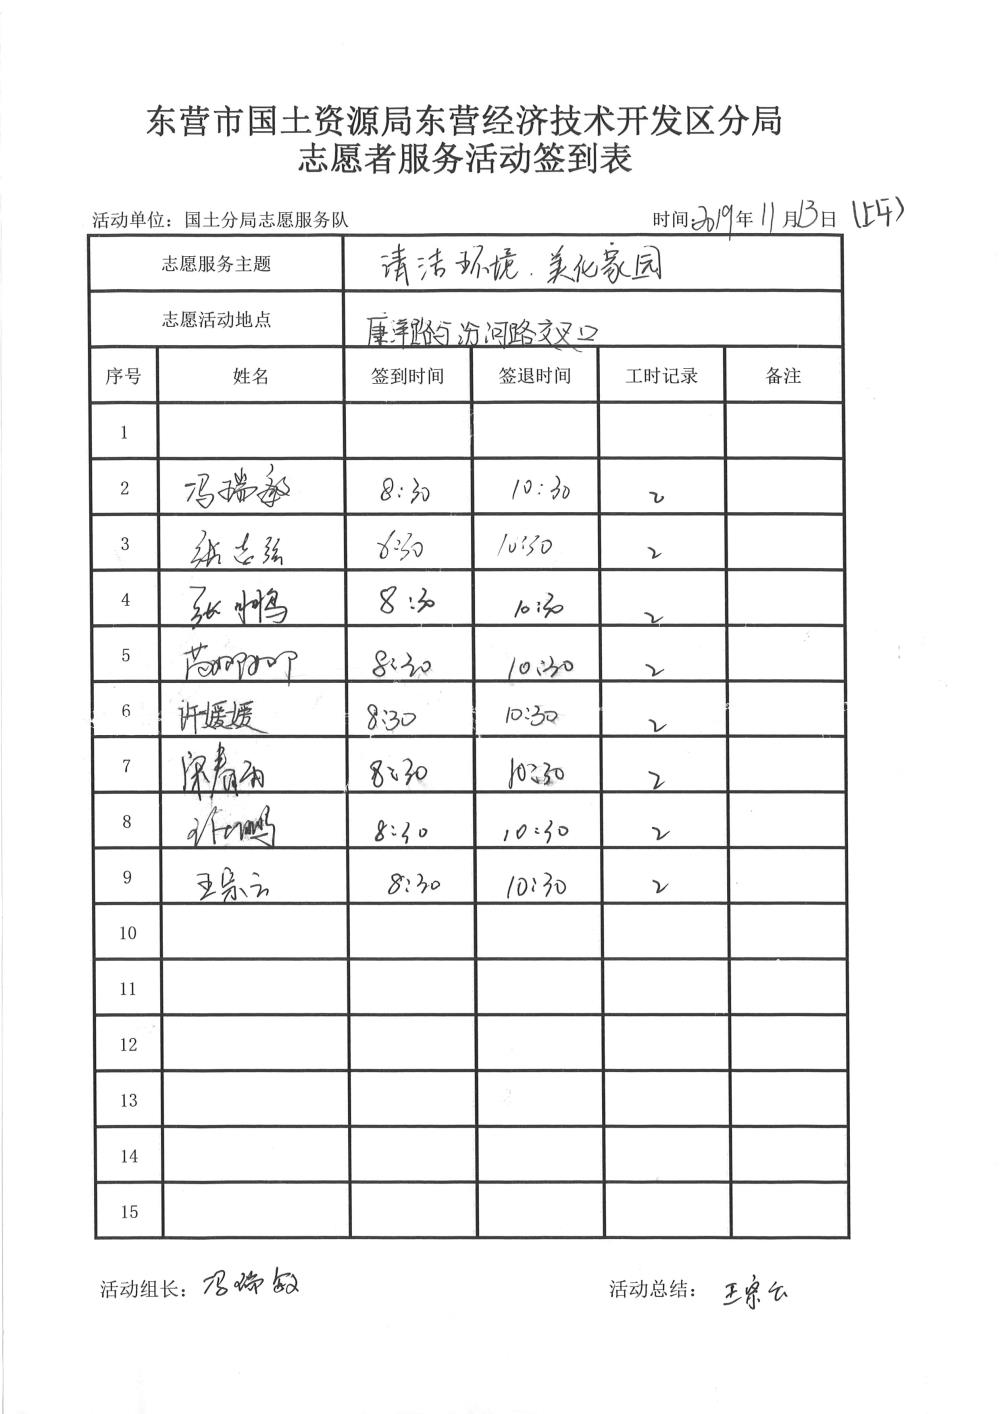 东营市国土资源局东营经济技术开发区分局
志愿者服务活动签到表
活动单位：国土分局志愿服务队 时间:2019年11月13日（上午）
志愿服务主题 清洁环境.美化家园
志愿活动地点 康洋路与汾河路交叉口
序号 姓名 签到时间 签退时间 工时记录 备注
1
2 冯瑞敏 8:30 10:30 2
3 张志强 8:30 10:30 2
4 张鹏 8:30 10:30 2
5 8:30 10:30 2
6 许媛媛 8:30 10:30 2
7 宋春雨 8:30 10:30 2
8 8:30 10:30 2
9 王宗云 8:30 10:30 2
10
11
12
13
14
15
活动组长：冯瑞敏 活动总结：王宗云